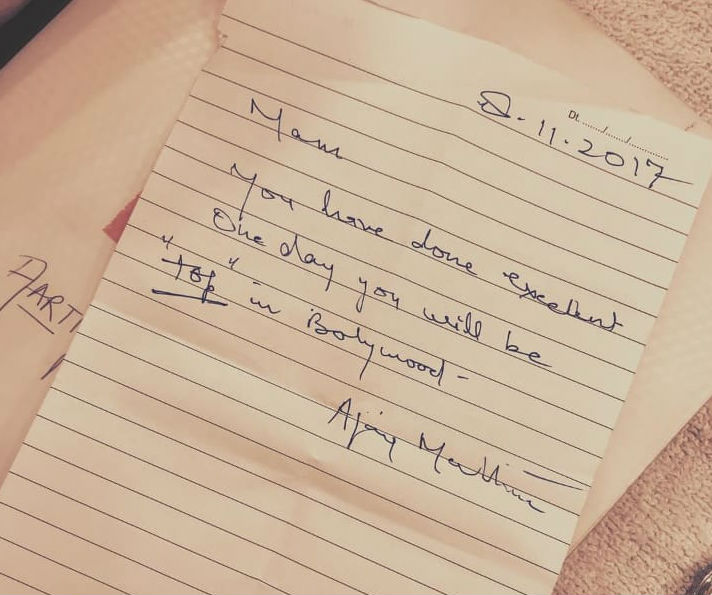 Dt. ....../....../......
8.11.2017
Mam
You have done excellent
One day you will be
"Top" in Bollywood -
Ajay
AARTI